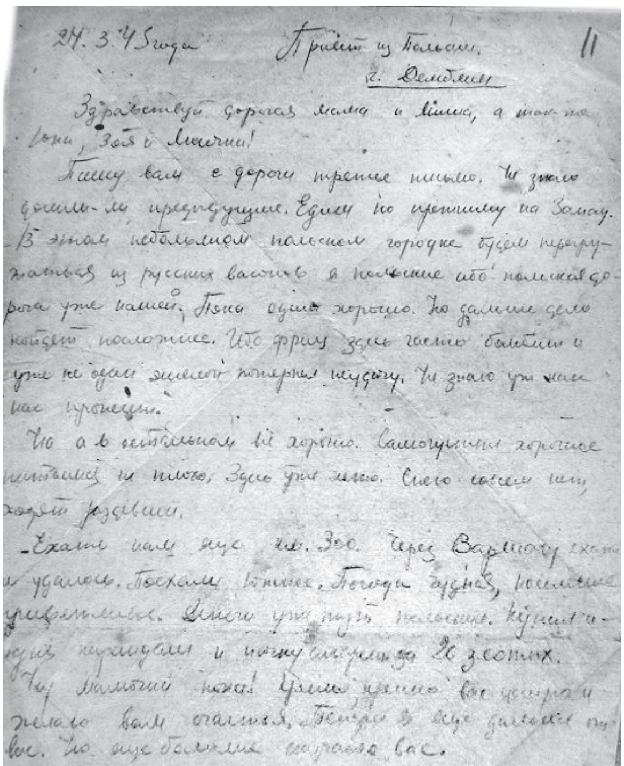 24.3.45 года Привет из Польши. 11
г. Демблин
Здравствуй дорогая мама и Мишка, а так-же
Юни, Зоя и
Пишу вам с дороги третье письмо. Не знаю
дошли-ли предыдущие. Едем по прежнему на Запад.
В этом небольшом польском городке будем перегру-
жаться из русских вагонов в польские ибо польская до-
рога уже нашей. Пока едим хорошо. Но дальше дело
пойдет посложнее. Ибо фриц здесь часто бомбит и
уже не один эшелон потерпел неудачу. Не знаю уж как
нас пронесет.
Ну а в остальном всё хорошо. Самочувствие хорошее
питаемся не плохо. Здесь уже лето. Снега совсем нет,
ходят раздевши.
Ехать нам еще км. 300. Через Варшаву ехать
не удалось. Поехали южнее. Погода чудная, население
приветливое. Деньги уже польские.
и за 20 злотых.
Ну мамочка пока! Целую крепко вас
желаю вам счастья. Теперь я еще дальше от
вас. Но еще больше вас.